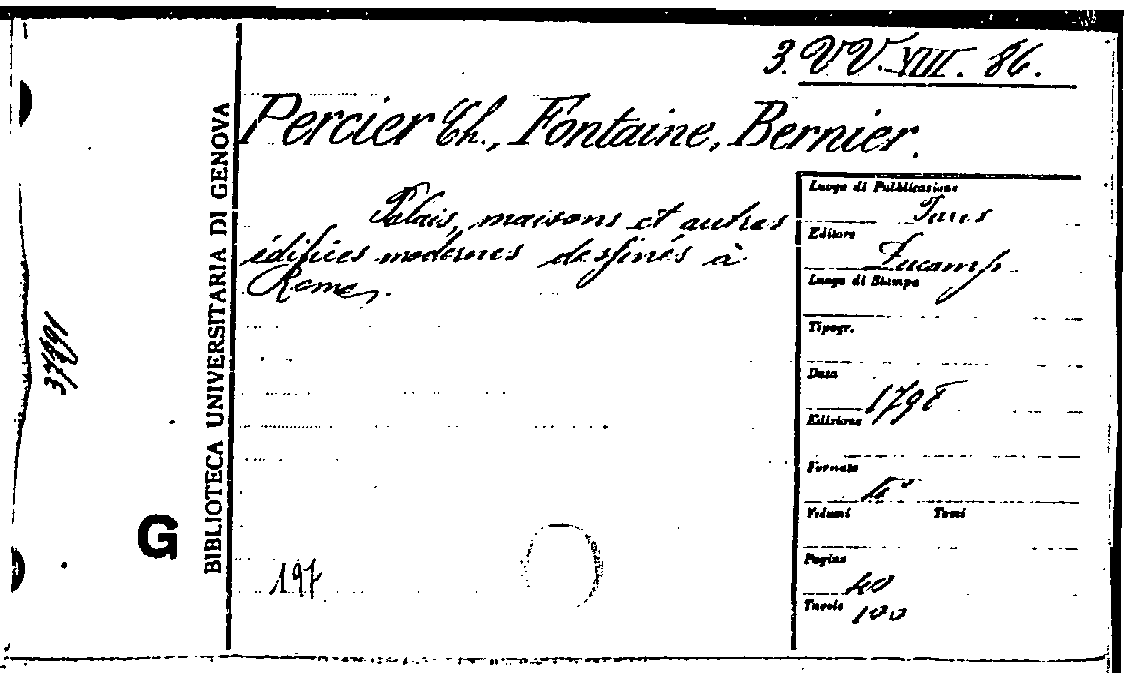 3. VV. XVIII. 86.
Percier Ch., Fontaine, Bernier.
Palais, maisons et autres
édifices modernes dessinés à
Rome.
Luogo di Pubblicazione
Paris
Editore
Ducamp
Luogo di Stampa
Tipogr.
Data
1798
Edizione
Formato
Volumi Tomi
Pagine
40
Tavole
100
197
BIBLIOTECA UNIVERSITARIA DI GENOVA
G